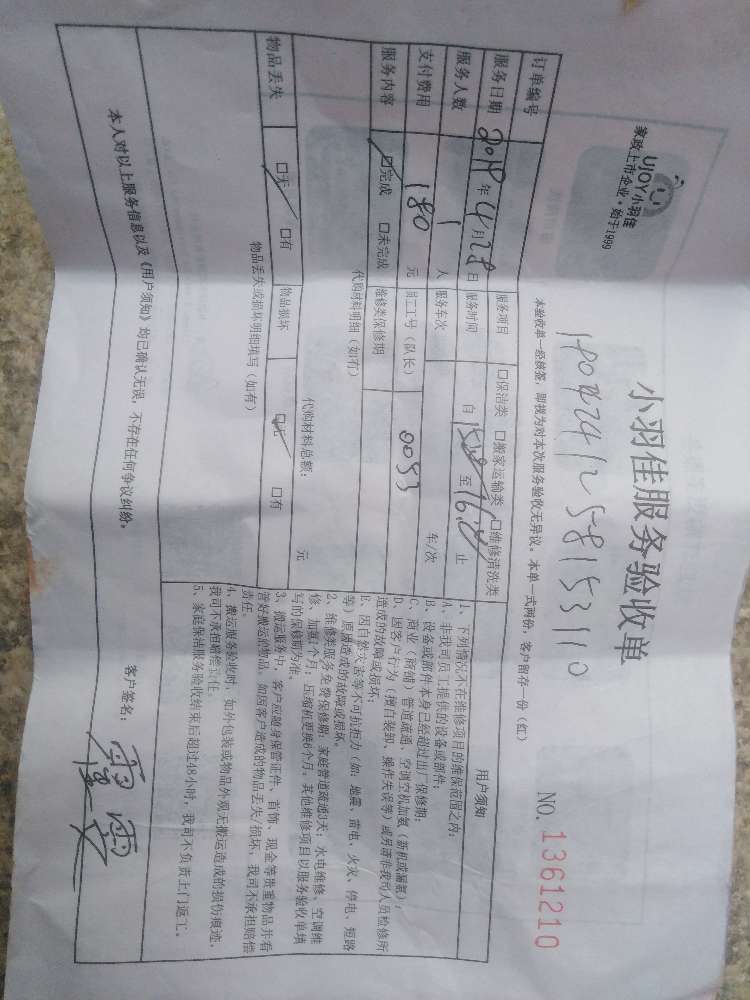 UJOY小羽佳
家政上市企业·始于1999
小羽佳服务验收单
NO. 1361210
本验收单一经核签，即视为对本次服务验收无异议。本单一式两份，客户留存一份（红）
订单编号 1804241258153110
服务项目 口保洁类 口搬家运输类 口维修清洗类
服务日期 2018年4月28日 服务时间 自 至 止
服务人数 1 人 服务车次 车/次
支付费用 180 元 员工工号（队长） 0053
服务内容 口完成 口未完成 维修类保修期
代购材料明细（如有）
代购材料总额： 元
物品丢失 口无 口有 物品损坏 口无 口有
物品丢失或损坏明细填写（如有）
用户须知
1、下列情况不在维修项目的维保范围之内：
A、非我司员工提供的设备或部件；
B、设备或部件本身已经超过出厂保修期；
C、商业（商铺）管道疏通、空调空机加氨（新机或漏氨）；
D、因客户行为（擅自装卸、操作失误等）或另请非我司人员检修所
造成的故障或损坏；
E、因自然灾害等不可抗拒力（如：地震、雷电、火灾、停电、短路
等）原因造成的故障或损坏。
2、维修类服务免费保修期：家庭管道疏通3天；水电维修、空调维
修、加氨1个月；压缩机更换6个月。其他维修项目以服务验收单填
写的保修期为准。
3、搬运服务中，客户应随身保管证件、首饰、现金等贵重物品并看
管好搬运的物品。如因客户造成的物品丢失/损坏，我司不承担赔偿
责任。
4、搬运服务验收时，如外包装或物品外观无搬运造成的损伤痕迹，
我司不承担赔偿责任。
5、家庭保洁服务验收结束后超过48小时，我司不负责上门返工。
本人对以上服务信息以及《用户须知》均已确认无误，不存在任何争议纠纷。
客户签名：